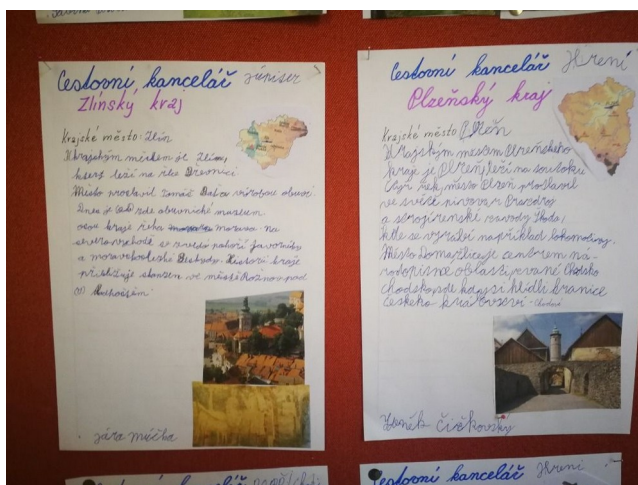 Cestovní kancelář Jupiter
Zlínský kraj
Krajské město: Zlín
Krajským městem je Zlín,
který leží na řece Dřevnici
Město proslavil Tomáš Baťa výrobou obuvi.
Dnes je zde obuvnické muzeum
osou kraje řeka morava. Na
severovýchodě se zvedá pohoří Javorníky
a moravskoslezské Beskydy. Historii kraje
přibližuje skanzen ve městě Rožnov pod
Radhoštěm
jára múčka
Cestovní kancelář Hření
Plzeňský kraj
Krajské město Plzeň
Krajským městem Plzeňského
kraje je Plzeň, leží na soutoku
čtyř řek, město Plzeň proslavil
ve světě pivovar Prazdroj
a strojírenské závody Škoda,
kde se vyrábí například lokomotivy.
Město Domažlice je centrem ná-
rodopisné oblasti zvané Chodsko
chodsko zde kdysi hlídli hranice
českého království - chodové
Zdeněk Čižkovský
Cestovní kancelář
Cestovní kancelář Hření